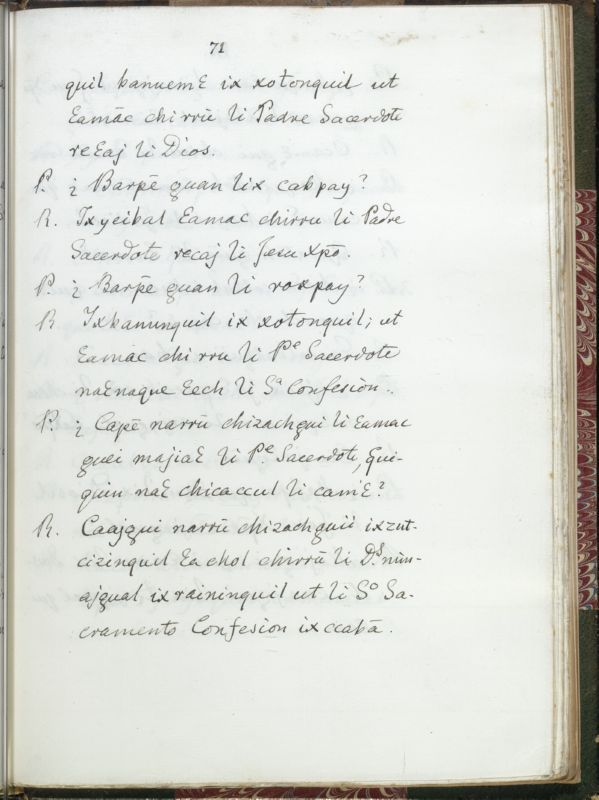 71
quil banuemƐ ix xotonquil ut
Ɛamāc chi rrū li Padre Sacerdote
reƐaj li Dios.
P. ¿ Barpē guan lix cabpay?
R. Ixyeibal Ɛamac chirru li Padre
Sacerdote recaj li Jesu xpō.
P. ¿ Barpē guan li roxpay?
R. Ixbanunquil ix xotonquil; ut
Ɛamac chi rru li Pᵉ Sacerdote
naƐnaque Ɛech li Sᵃ Confesion.
P. ¿ Capē narrū chizachgui li Ɛamac
guei majiaƐ li Pᵉ Sacerdote, gui-
quin naƐ chicaccul li camƐ?
R. Caajgui narrū chizachguii ixzut-
cizinquil Ɛa chol chirrū li Dˢ nim-
ajgual ixraininquil ut li Sᵒ Sa-
cramento Confesion ixccabā.